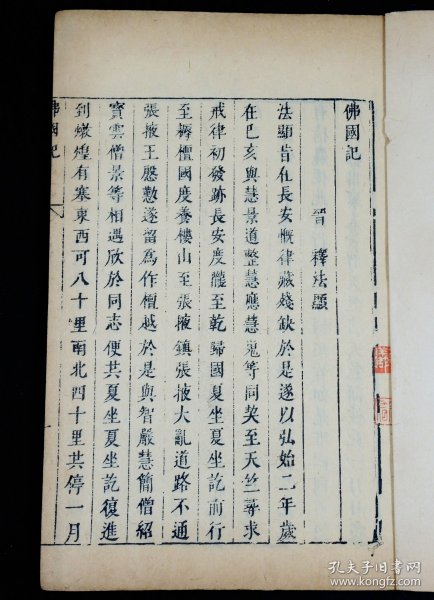 佛國記
晉 釋法顯
法顯昔在長安慨律藏殘缺於是遂以弘始二年歲
在巳亥與慧景道整慧應慧嵬等同契至天竺尋求
戒律初發跡長安度隴至乾歸國夏坐夏坐訖前行
至褥檀國度養樓山至張掖鎮張掖大亂道路不通
張掖王慇懃遂留爲作檀越於是與智嚴慧簡僧紹
寶雲僧景等相遇欣於同志便共夏坐夏坐訖復進
到燉煌有塞東西可八十里南北四十里共停一月
佛國記
孔夫子旧书网
www.kongfz.com